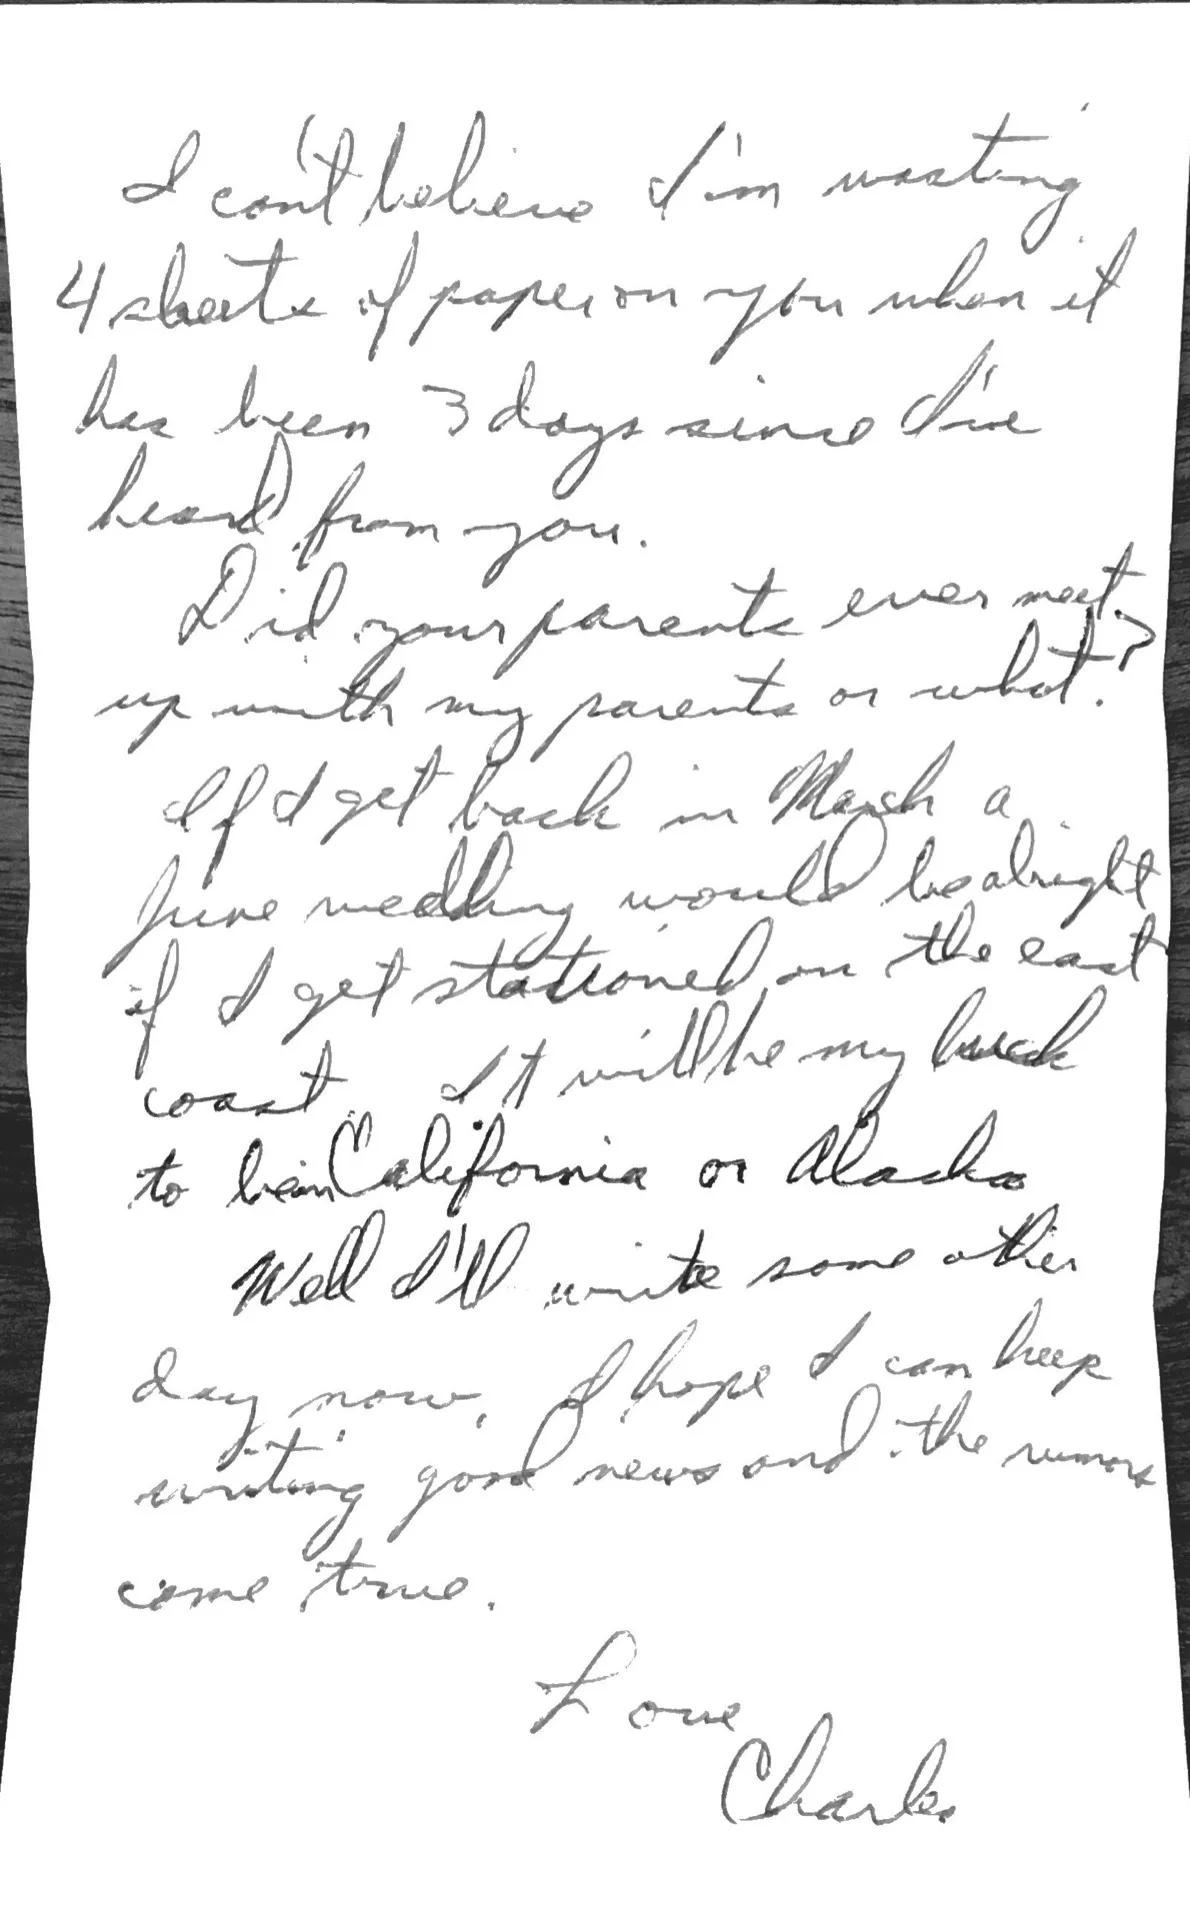 I can't believe I'm wasting
4 sheets of paper on you when it
has been 3 days since I've
heard from you.
Did your parents ever meet
up with my parents or what??
If I get back in March a
June wedding would be alright
if I get stationed on the east
coast. It will be my luck
to be in California or Alaska
Well I'll write some other
day now. I hope I can keep
writing good news and the rumors
come true.
Love
Charles